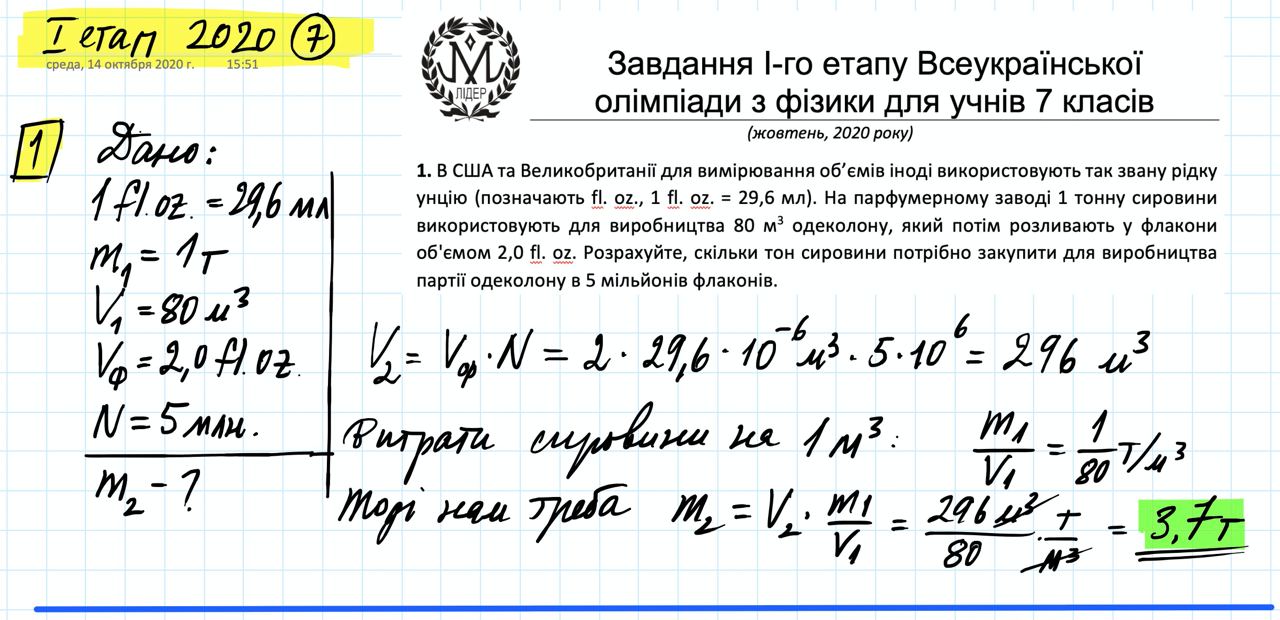 I етап 2020 7
среда, 14 октября 2020 г. 15:51
М
ЛІДЕР
Завдання І-го етапу Всеукраїнської
олімпіади з фізики для учнів 7 класів
(жовтень, 2020 року)
1. В США та Великобританії для вимірювання об’ємів іноді використовують так звану рідку
унцію (позначають fl. oz., 1 fl. oz. = 29,6 мл). На парфумерному заводі 1 тонну сировини
використовують для виробництва 80 м³ одеколону, який потім розливають у флакони
об'ємом 2,0 fl. oz. Розрахуйте, скільки тон сировини потрібно закупити для виробництва
партії одеколону в 5 мільйонів флаконів.
1 Дано:
1 fl. oz. = 29,6 мл
m₁ = 1т
V₁ = 80 м³
Vф = 2,0 fl. oz.
N = 5 млн.
m₂ - ?
V₂ = Vф · N = 2 · 29,6 · 10⁻⁶ м³ · 5 · 10⁶ = 296 м³
Витрати сировини на 1 м³: m₁/V₁ = 1/80 т/м³
Тоді нам треба m₂ = V₂ · m₁/V₁ = 296 м³/80 · т/м³ = 3,7 т